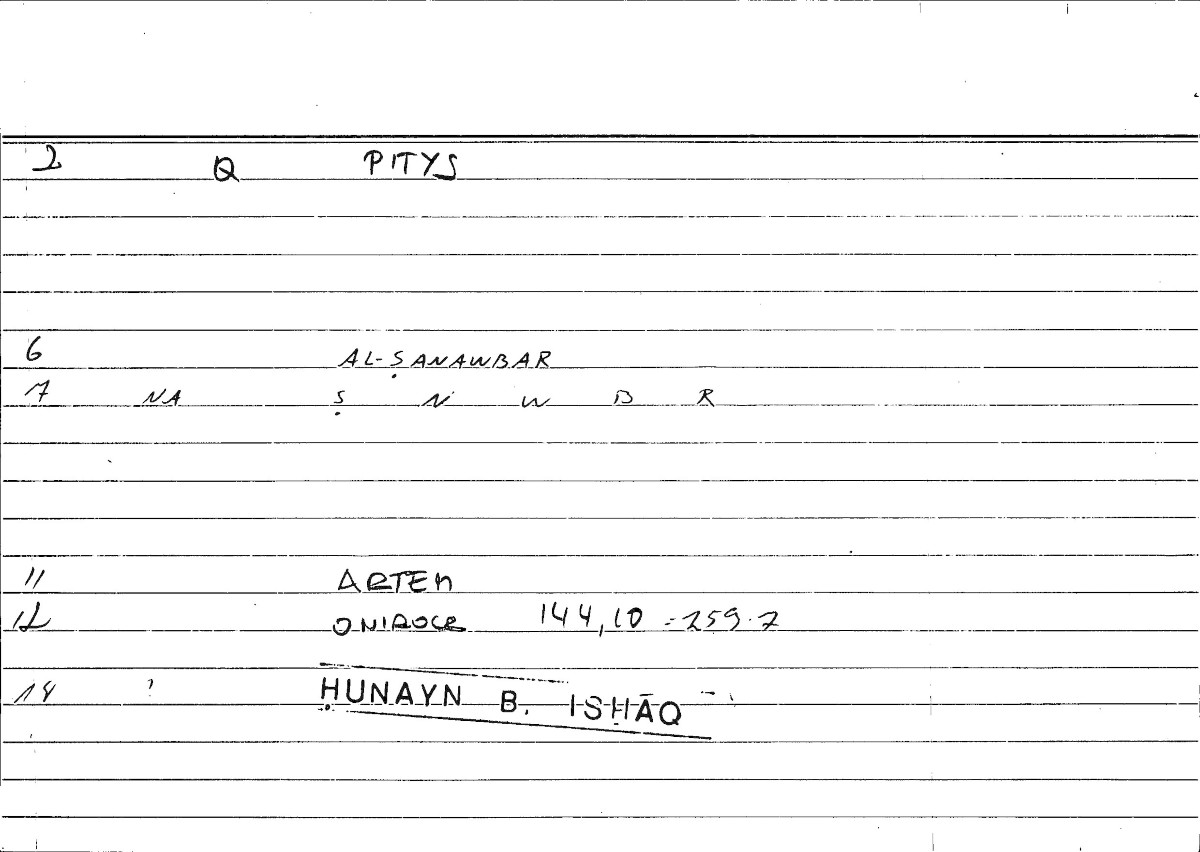 2 Q PITYS
6 AL-ṢANAWBAR
7 NA Ṣ N W B R
11 ARTEM
12 ONIROCR 144,10 = 259.7
14 ? ḤUNAYN B. ISḤĀQ